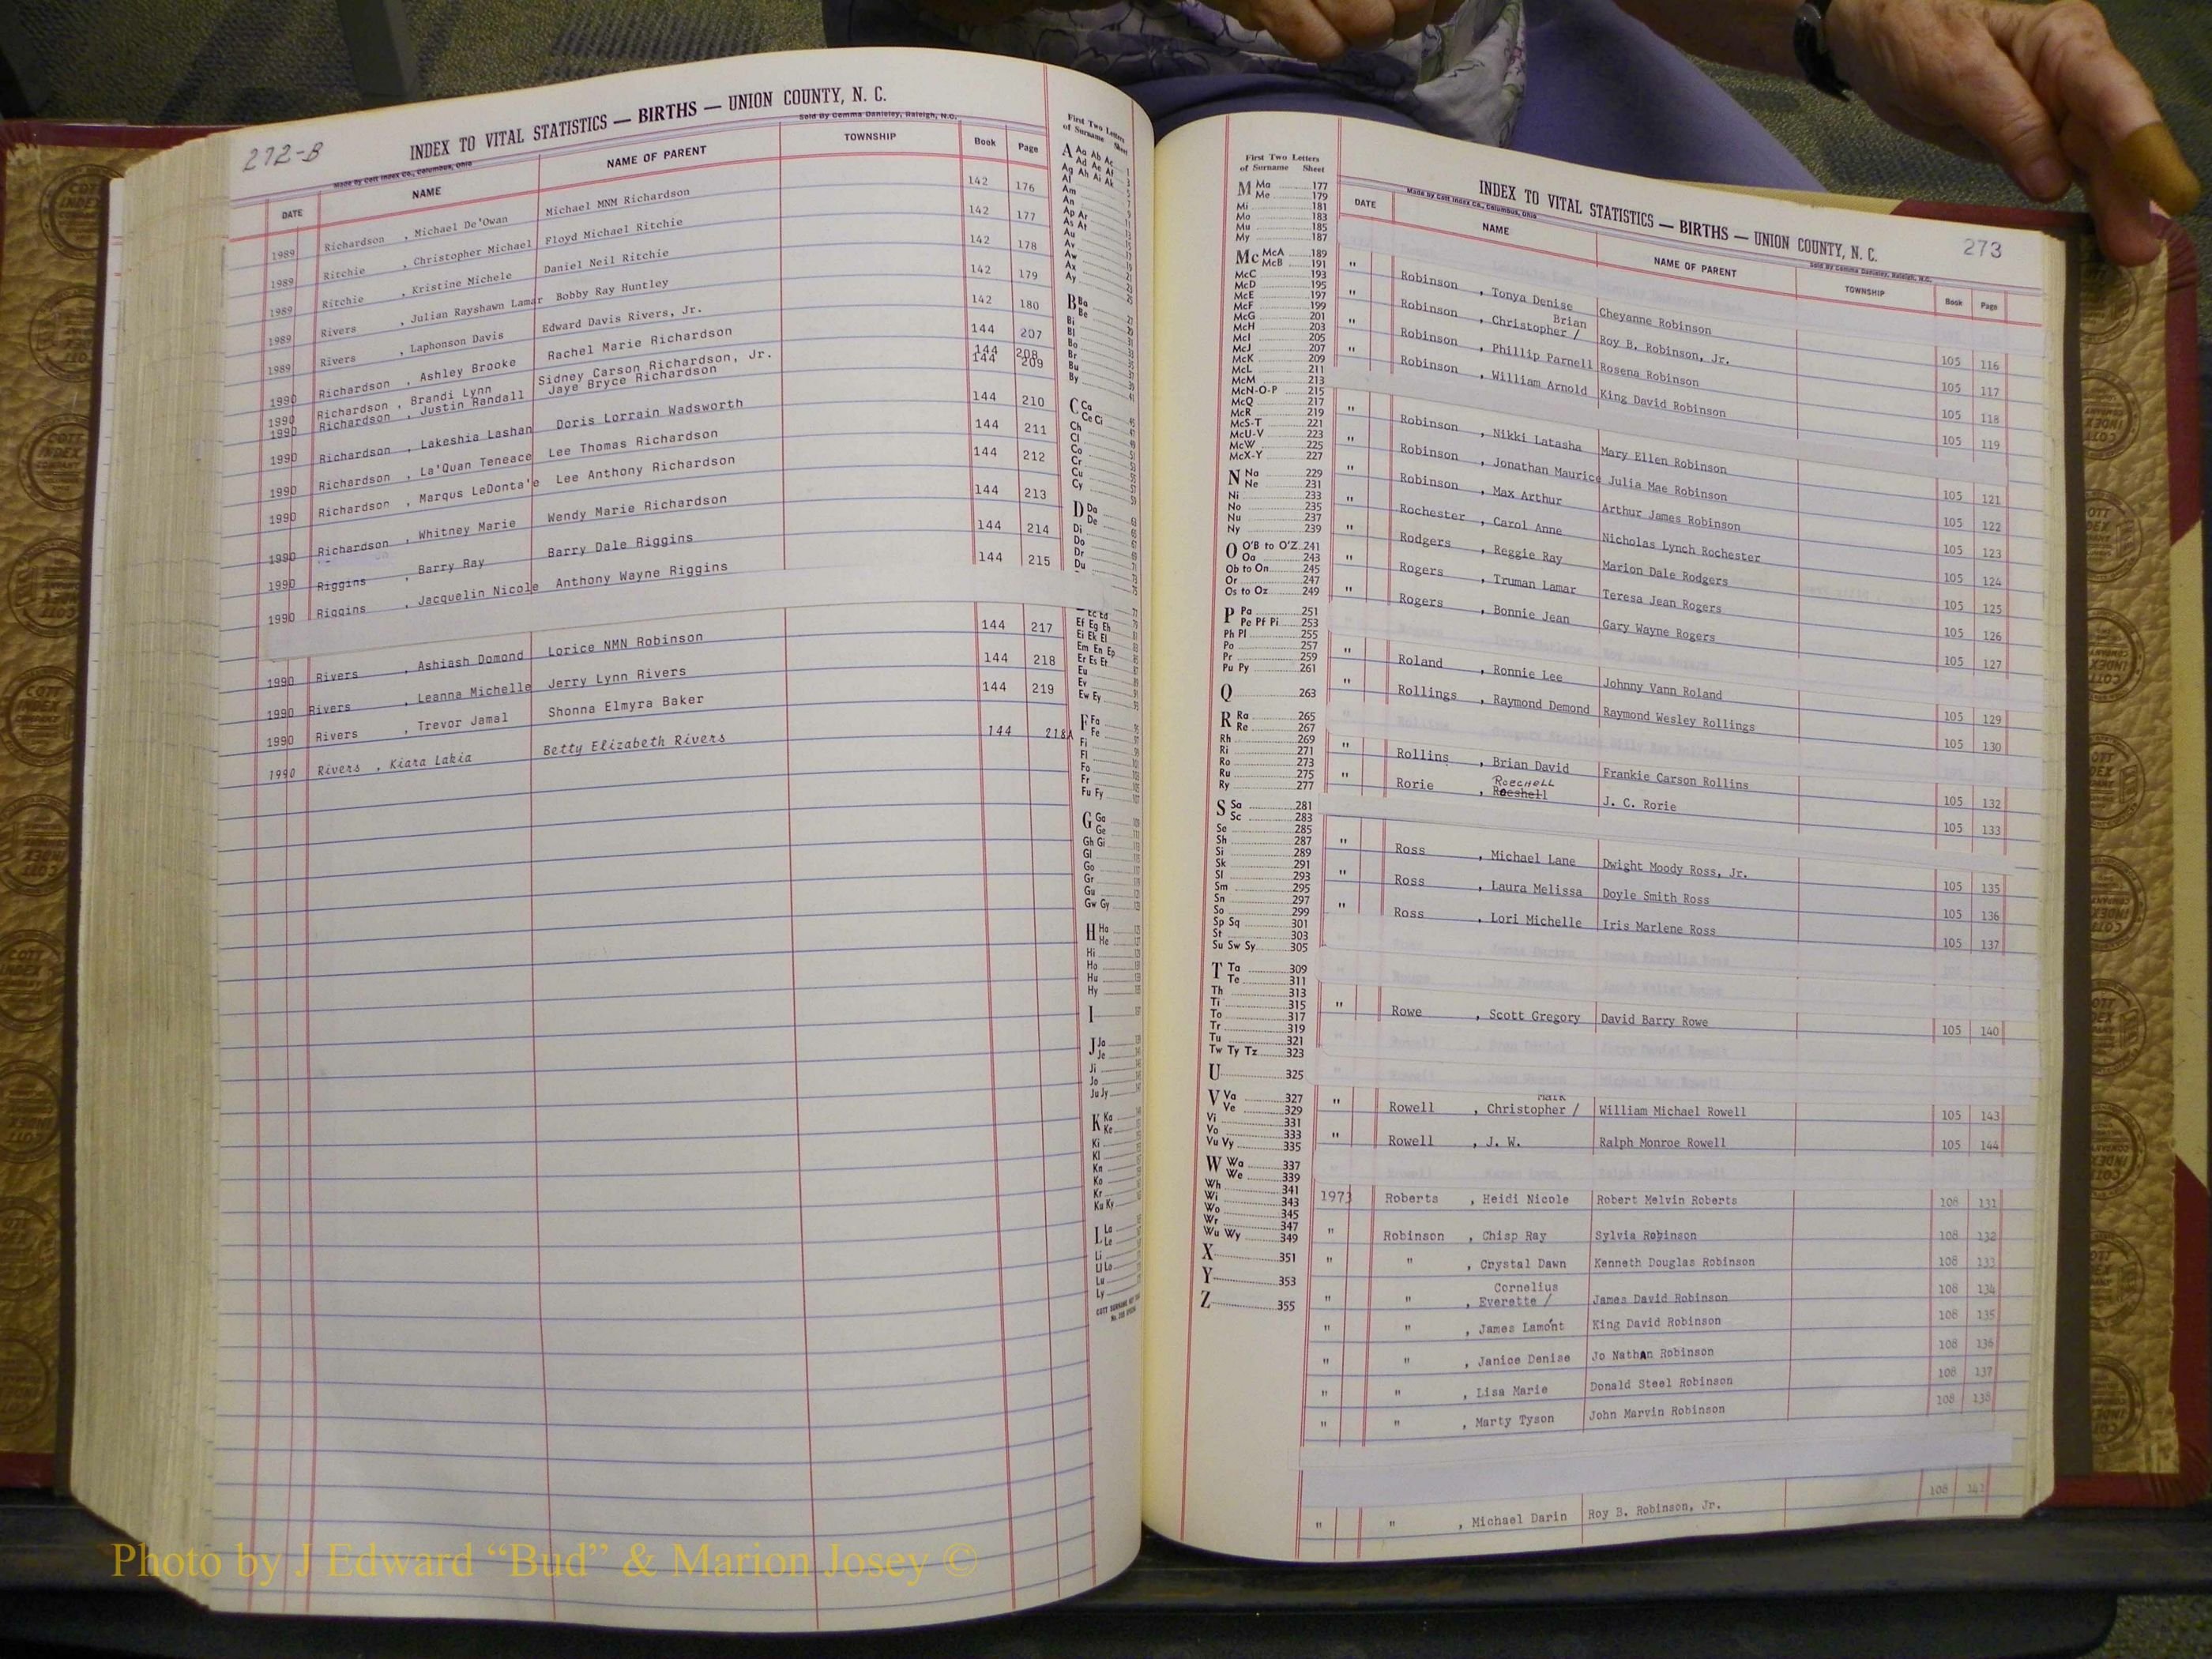 272-B
INDEX TO VITAL STATISTICS — BIRTHS — UNION COUNTY, N. C.
Made by Cott Index Co., Columbus, Ohio
Sold By Cemma Danieley, Raleigh, N.C.
DATE NAME NAME OF PARENT TOWNSHIP Book Page
1989 Richardson , Michael De'Owan Michael MNM Richardson 142 176
1989 Ritchie , Christopher Michael Floyd Michael Ritchie 142 177
1989 Ritchie , Kristine Michele Daniel Neil Ritchie 142 178
1989 Rivers , Julian Rayshawn Lamar Bobby Ray Huntley 142 179
1989 Rivers , Laphonson Davis Edward Davis Rivers, Jr. 142 180
1990 Richardson , Ashley Brooke Rachel Marie Richardson 144 207
1990 Richardson , Brandi Lynn Sidney Carson Richardson, Jr. 144 208
1990 Richardson , Justin Randall Jaye Bryce Richardson 144 209
1990 Richardson , Lakeshia Lashan Doris Lorrain Wadsworth 144 210
1990 Richardson , La'Quan Teneace Lee Thomas Richardson 144 211
1990 Richardson , Marqus LeDonta'e Lee Anthony Richardson 144 212
1990 Richardson , Whitney Marie Wendy Marie Richardson 144 213
1990 Riggins , Barry Ray Barry Dale Riggins 144 214
1990 Riggins , Jacquelin Nicole Anthony Wayne Riggins 144 215
1990 Rivers , Ashiash Domond Lorice NMN Robinson 144 217
1990 Rivers , Leanna Michelle Jerry Lynn Rivers 144 218
1990 Rivers , Trevor Jamal Shonna Elmyra Baker 144 219
1990 Rivers , Kiara Lakia Betty Elizabeth Rivers 144 218A
First Two Letters
of Surname Sheet
A Aa Ab Ac
Ad Ae Af
Ag Ah Ai Ak
Al
Am
An
Ap Ar
As At
Au
Av
Aw
Ax
Ay
B Ba
Be
Bi
Bl
Bo
Br
Bu
By
C Ca
Ce Ci
Ch
Cl
Co
Cr
Cu
Cy
D Da
De
Di
Do
Dr
Du
Ec Ed
Ef Eg Eh
Ei Ek El
Em En Ep
Er Es Et
Eu
Ev
Ew Ey
F Fa
Fe
Fi
Fl
Fo
Fr
Fu Fy
G Ga
Ge
Gh Gi
Gl
Go
Gr
Gu
Gw Gy
H Ha
He
Hi
Ho
Hu
Hy
I
J Ja
Je
Ji
Jo
Ju Jy
K Ka
Ke
Ki
Kl
Kn
Ko
Kr
Ku Ky
L La
Le
Li
Ll Lo
Lu
Ly
First Two Letters
of Surname Sheet
M Ma 177
Me 179
Mi 181
Mo 183
Mu 185
My 187
Mc McA 189
McB 191
McC 193
McD 195
McE 197
McF 199
McG 201
McH 203
McI 205
McJ 207
McK 209
McL 211
McM 213
McN-O-P 215
McQ 217
McR 219
McS-T 221
McU-V 223
McW 225
McX-Y 227
N Na 229
Ne 231
Ni 233
No 235
Nu 237
Ny 239
O O'B to O'Z 241
Oa 243
Ob to On 245
Or 247
Os to Oz 249
P Pa 251
Pe Pf Pi 253
Ph Pl 255
Po 257
Pr 259
Pu Py 261
Q 263
R Ra 265
Re 267
Rh 269
Ri 271
Ro 273
Ru 275
Ry 277
S Sa 281
Sc 283
Se 285
Sh 287
Si 289
Sk 291
Sl 293
Sm 295
Sn 297
So 299
Sp Sq 301
St 303
Su Sw Sy 305
T Ta 309
Te 311
Th 313
Ti 315
To 317
Tr 319
Tu 321
Tw Ty Tz 323
U 325
V Va 327
Ve 329
Vi 331
Vo 333
Vu Vy 335
W Wa 337
We 339
Wh 341
Wi 343
Wo 345
Wr 347
Wu Wy 349
X 351
Y 353
Z 355
INDEX TO VITAL STATISTICS — BIRTHS — UNION COUNTY, N. C. 273
Made by Cott Index Co., Columbus, Ohio
Sold By Cemma Danieley, Raleigh, N.C.
DATE NAME NAME OF PARENT TOWNSHIP Book Page
" Robinson , Tonya Denise Cheyanne Robinson 105 116
Brian
" Robinson , Christopher / Roy B. Robinson, Jr. 105 117
" Robinson , Phillip Parnell Rosena Robinson 105 118
" Robinson , William Arnold King David Robinson 105 119
" Robinson , Nikki Latasha Mary Ellen Robinson 105 121
" Robinson , Jonathan Maurice Julia Mae Robinson 105 122
" Robinson , Max Arthur Arthur James Robinson 105 123
" Rochester , Carol Anne Nicholas Lynch Rochester 105 124
" Rodgers , Reggie Ray Marion Dale Rodgers 105 125
" Rogers , Truman Lamar Teresa Jean Rogers 105 126
" Rogers , Bonnie Jean Gary Wayne Rogers 105 127
" Roland , Ronnie Lee Johnny Vann Roland 105 129
" Rollings , Raymond Demond Raymond Wesley Rollings 105 130
" Rollins , Brian David Frankie Carson Rollins 105 132
Roechell
" Rorie , Roeshell J. C. Rorie 105 133
" Ross , Michael Lane Dwight Moody Ross, Jr. 105 135
" Ross , Laura Melissa Doyle Smith Ross 105 136
" Ross , Lori Michelle Iris Marlene Ross 105 137
" Rowe , Scott Gregory David Barry Rowe 105 140
Mark
" Rowell , Christopher / William Michael Rowell 105 143
" Rowell , J. W. Ralph Monroe Rowell 105 144
1973 Roberts , Heidi Nicole Robert Melvin Roberts 108 131
" Robinson , Chisp Ray Sylvia Robinson 108 132
" " , Crystal Dawn Kenneth Douglas Robinson 108 133
Cornelius
" " , Everette / James David Robinson 108 134
" " , James Lamont King David Robinson 108 135
" " , Janice Denise Jo Nathan Robinson 108 136
" " , Lisa Marie Donald Steel Robinson 108 137
" " , Marty Tyson John Marvin Robinson 108 138
" " , Michael Darin Roy B. Robinson, Jr. 108
Photo by J Edward “Bud” & Marion Josey ©